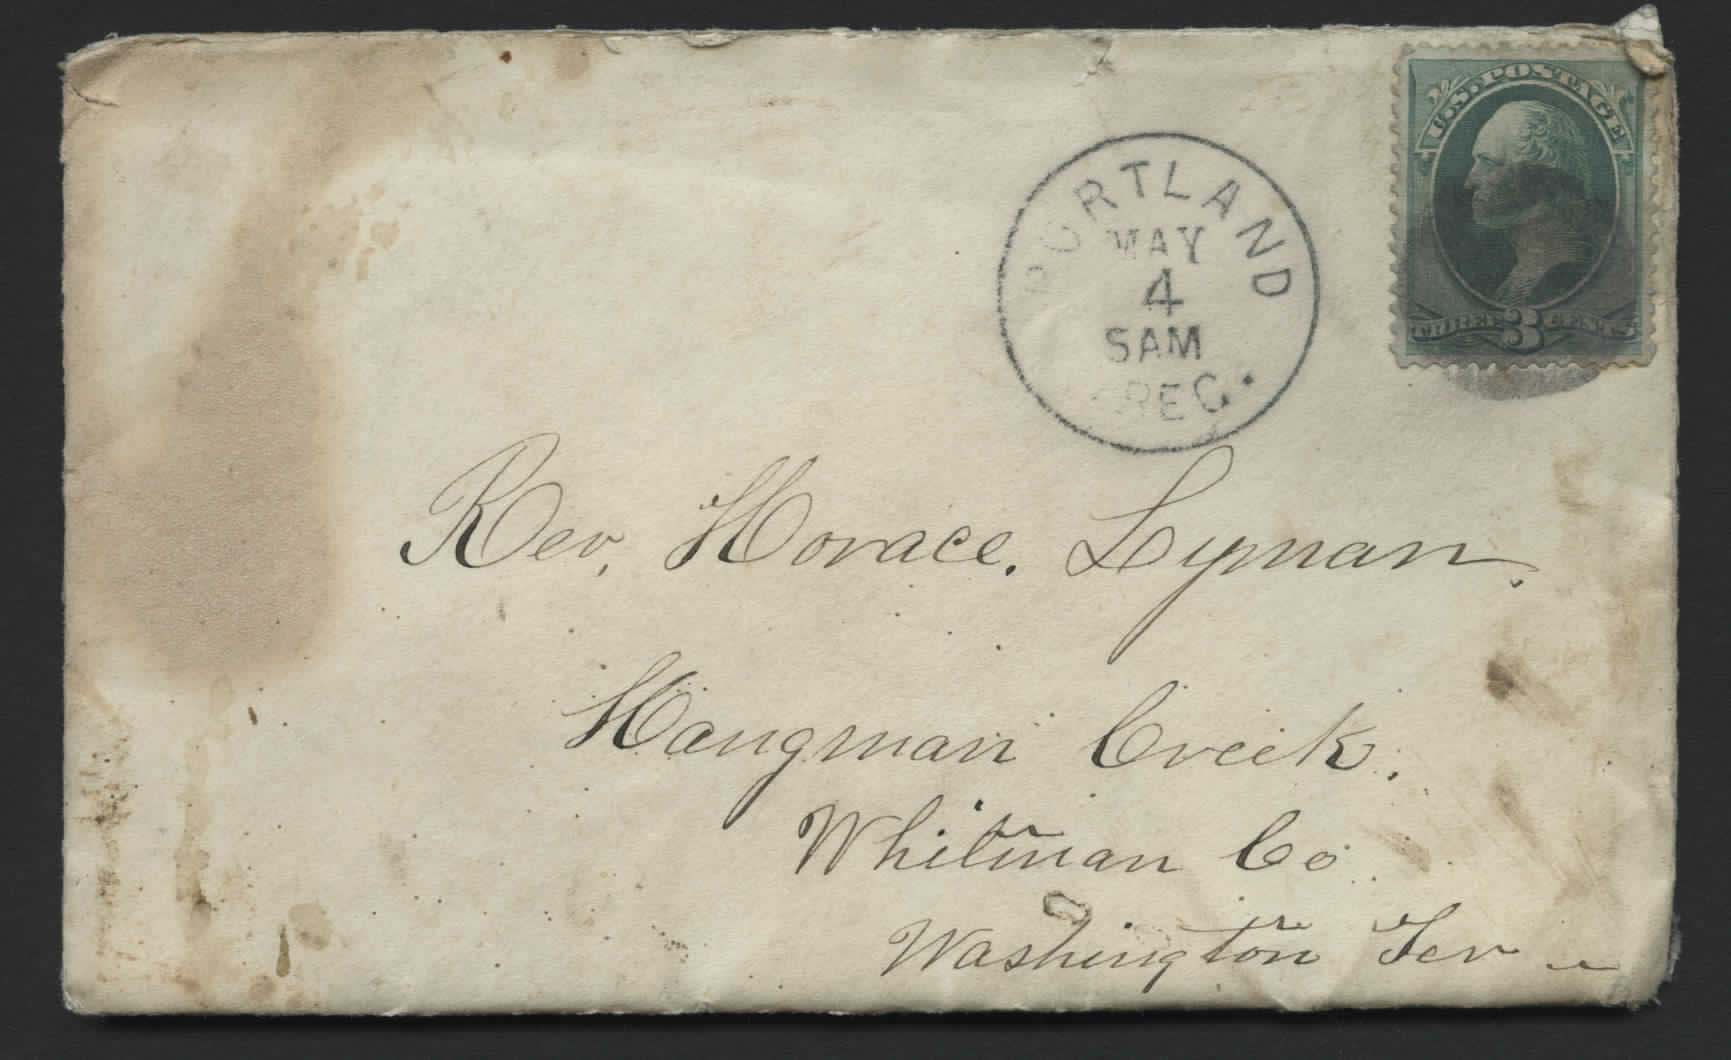 U.S. POSTAGE
THREE 3 CENTS
PORTLAND
MAY
4
5AM
OREG.
Rev. Horace. Lyman.
Hangman Creek.
Whitman Co.
Washington Ter